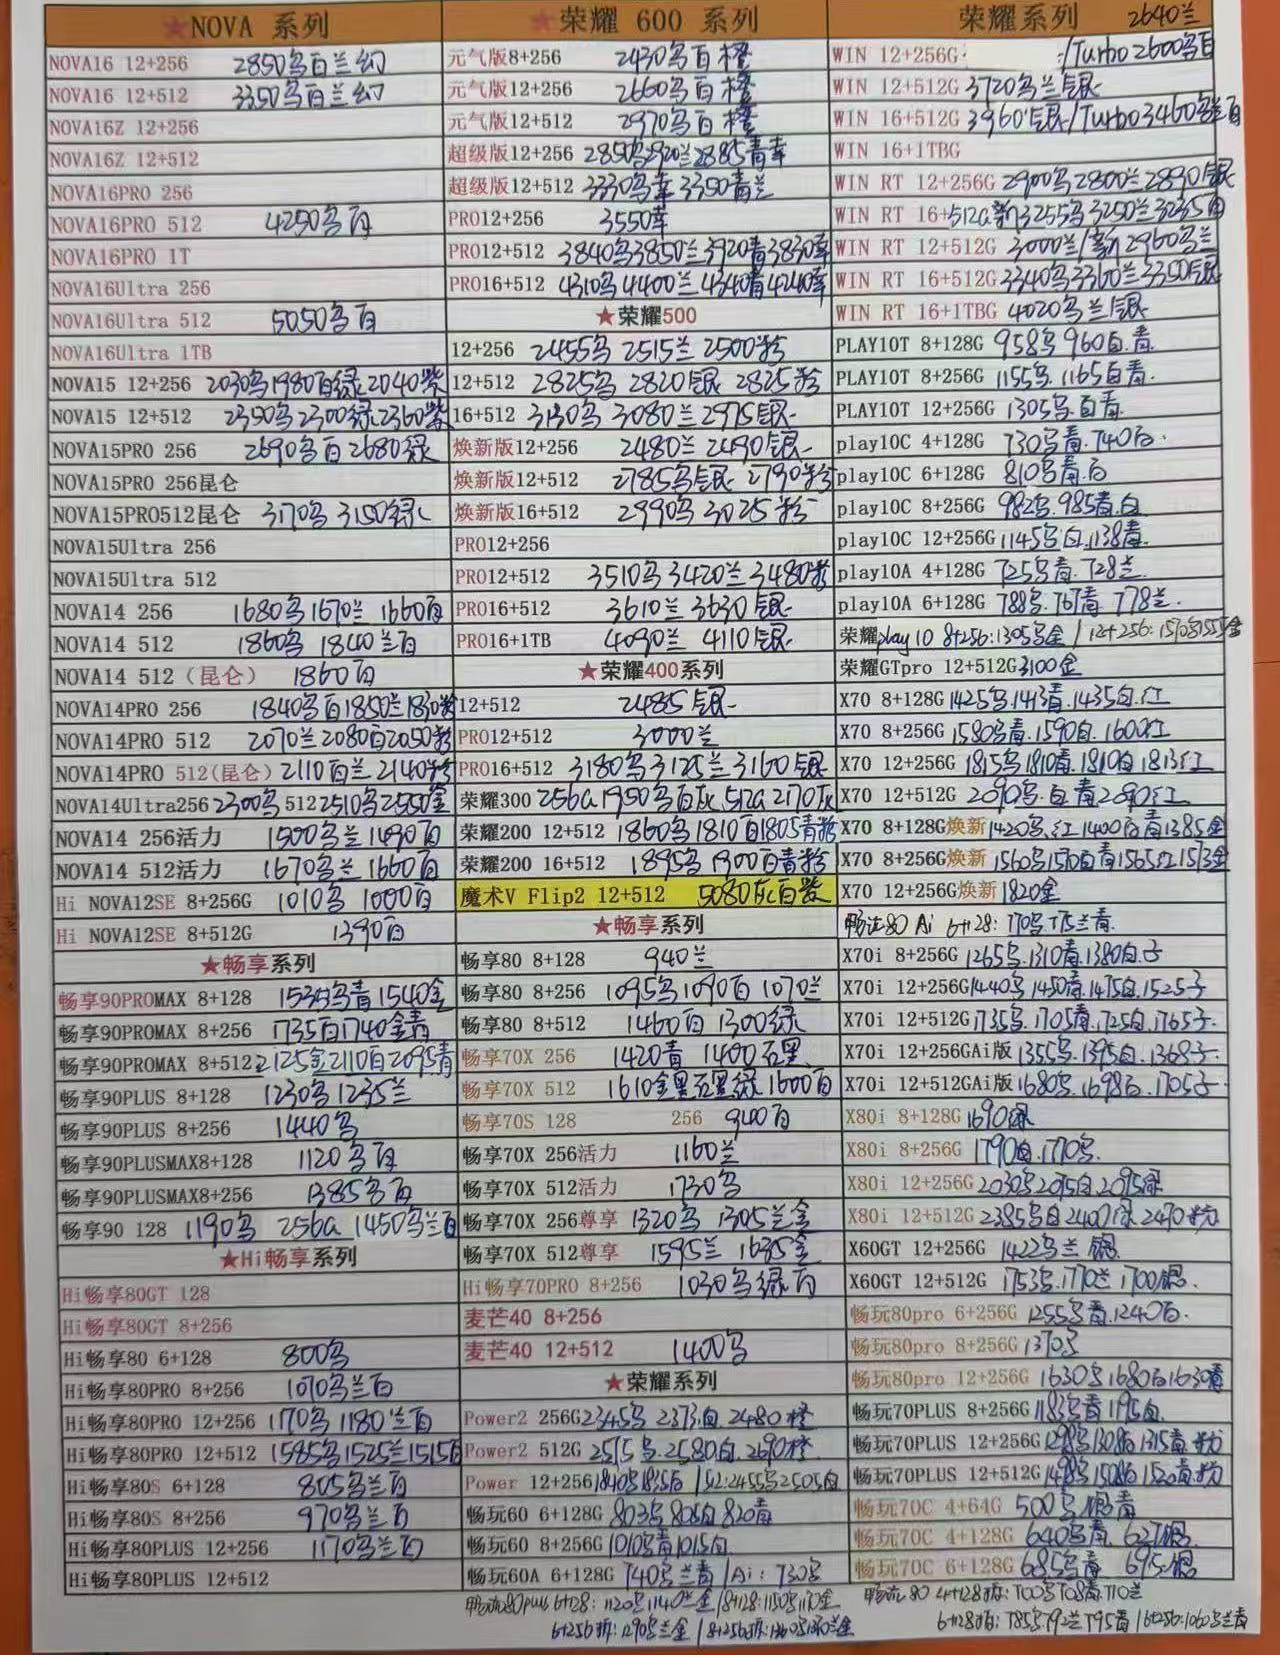 ★NOVA 系列
NOVA16 12+256 2850乌百兰幻
NOVA16 12+512 3350乌百兰幻
NOVA16Z 12+256
NOVA16Z 12+512
NOVA16PRO 256
NOVA16PRO 512 4250乌百
NOVA16PRO 1T
NOVA16Ultra 256
NOVA16Ultra 512 5050乌百
NOVA16Ultra 1TB
NOVA15 12+256 2030乌1980百绿2040紫
NOVA15 12+512 2350乌2300绿2360紫
NOVA15PRO 256 2690乌百2680绿
NOVA15PRO 256昆仑
NOVA15PRO512昆仑 3170乌3150绿
NOVA15Ultra 256
NOVA15Ultra 512
NOVA14 256 1680乌1670兰1660百
NOVA14 512 1860乌 1840兰百
NOVA14 512（昆仑） 1860百
NOVA14PRO 256 1840乌百1850兰1830粉
NOVA14PRO 512 2070兰2080百2050粉
NOVA14PRO 512(昆仑) 2110百兰2140粉
NOVA14Ultra256 2300乌 512 2510乌2550金
NOVA14 256活力 1500乌兰1490百
NOVA14 512活力 1670乌兰1660百
Hi NOVA12SE 8+256G 1010乌 1000百
Hi NOVA12SE 8+512G 1390百
★畅享系列
畅享90PROMAX 8+128 乌青1540金
畅享90PROMAX 8+256 1735百1740金青
畅享90PROMAX 8+512 2125金2110百2095青
畅享90PLUS 8+128 1230乌1235兰
畅享90PLUS 8+256 1440乌
畅享90PLUSMAX8+128 1120乌百
畅享90PLUSMAX8+256 1385乌百
畅享90 128 1190乌 256G 1450乌兰百
★Hi畅享系列
Hi畅享80GT 128
Hi畅享80GT 8+256
Hi畅享80 6+128 800乌
Hi畅享80PRO 8+256 1070乌兰百
Hi畅享80PRO 12+256 1170乌1180兰百
Hi畅享80PRO 12+512 1585乌1525兰1515百
Hi畅享80S 6+128 805乌兰百
Hi畅享80S 8+256 970乌兰百
Hi畅享80PLUS 12+256 1170乌兰百
Hi畅享80PLUS 12+512
★荣耀 600 系列
元气版8+256 2430乌百橙
元气版12+256 2660乌百橙
元气版12+512 2970乌百橙
超级版12+256 2850乌2920兰2885青幸
超级版12+512 3330乌幸3350青兰
PRO12+256 3550幸
PRO12+512 3840乌3850兰3920青3830幸
PRO16+512 4310乌4400兰4340青4240幸
★荣耀500
12+256 2455乌 2515兰 2500粉
12+512 2825乌 2820银 2825粉
16+512 3130乌 3080兰 2975银
焕新版12+256 2480兰 2490银
焕新版12+512 2785乌银 2790粉
焕新版16+512 2990乌 3025粉
PRO12+256
PRO12+512 3510乌3420兰3480粉
PRO16+512 3610兰3630银
PRO16+1TB 4090兰 4110银
★荣耀400系列
12+512 2485银
PRO12+512 3000兰
PRO16+512 3180乌3125兰3160银
荣耀300 256G 1950乌百灰 512G 2170灰
荣耀200 12+512 1860乌1810百1805青粉
荣耀200 16+512 1895乌1900百青粉
魔术V Flip2 12+512 5080灰百紫
★畅享系列
畅享80 8+128 940兰
畅享80 8+256 1095乌1090百1070兰
畅享80 8+512 1460百1300绿
畅享70X 256 1420青 1400石黑
畅享70X 512 1610金黑石黑绿1600百
畅享70S 128 256 940百
畅享70X 256活力 1160兰
畅享70X 512活力 1730乌
畅享70X 256尊享 1320乌 1305兰金
畅享70X 512尊享 1595兰 1635金
Hi畅享70PRO 8+256 1030乌绿百
麦芒40 8+256
麦芒40 12+512 1400乌
★荣耀系列
Power2 256G 2345乌 2373白 2480橙
Power2 512G 2575乌.2580白.2690橙
Power 12+256 1840乌1835白 /512:2455乌2505白
畅玩60 6+128G 803乌808白820青
畅玩60 8+256G 1010乌青1015白
畅玩60A 6+128G 740乌兰青 /Ai：730乌
畅玩80plus 6+128：1120乌1140兰金/8+128:1150乌1170金
6+256拆：1290乌兰金 /8+256拆:
荣耀系列 2640兰
WIN 12+256G: /Turbo2600乌白
WIN 12+512G 3720乌兰银
WIN 16+512G 3960银/Turbo3460乌兰白
WIN 16+1TBG
WIN RT 12+256G 2900乌2800兰2890银
WIN RT 16+512G新3255乌3250兰3235白
WIN RT 12+512G 3000兰/新2960乌兰
WIN RT 16+512G 3340乌3360兰3350银
WIN RT 16+1TBG 4020乌兰银
PLAY10T 8+128G 958乌960白.青.
PLAY10T 8+256G 1155乌.1165白青.
PLAY10T 12+256G 1305乌.白青.
play10C 4+128G 730乌青.740白.
play10C 6+128G 810乌青.白
play10C 8+256G 982乌.985青.白
play10C 12+256G 1145乌白.1138青.
play10A 4+128G 725乌青.728兰.
play10A 6+128G 788乌.767青 778兰.
荣耀play10 8+256:1305乌金 /12+256:1570乌1555金
荣耀GTpro 12+512G3100金
X70 8+128G 1425乌.1413青.1435白.红
X70 8+256G 1580乌青.1590白.1600红
X70 12+256G 1815乌1810青.1810白1813红
X70 12+512G 2090乌.白青2090红
X70 8+128G焕新1420乌.红1400白青1385金
X70 8+256G焕新 1560乌1570白青1565红1573金
X70 12+256G焕新 1820金
畅玩80 Ai 6+128：770乌775兰青.
X70i 8+256G 1265乌.1310青.1380白.子
X70i 12+256G1440乌1450青.1475白.1525子
X70i 12+512G1735乌.1705青.1725白.1765子.
X70i 12+256GAi版 1355乌.1395白.1368子.
X70i 12+512GAi版1680乌.1698白.1705子.
X80i 8+128G 1690绿
X80i 8+256G 1790白.1770乌.
X80i 12+256G 2030乌2075白2095绿
X80i 12+512G 2385乌白2400绿2470粉
X60GT 12+256G 1422乌兰 银.
X60GT 12+512G 1753乌.1770兰 1700银.
畅玩80pro 6+256G 1255乌青.1240白.
畅玩80pro 8+256G 1370乌
畅玩80pro 12+256G 1630乌1680白1630青
畅玩70PLUS 8+256G 1183乌青1195白.
畅玩70PLUS 12+256G 1298乌1308白1315青.粉
畅玩70PLUS 12+512G1498乌1508白1520青粉
畅玩70C 4+64G 500乌银青
畅玩70C 4+128G 640乌青.627银.
畅玩70C 6+128G 685乌青 695银
畅玩80 4+128拆:700乌708青.710兰
6+128拍：785乌792兰795青/6+256:1060乌兰青